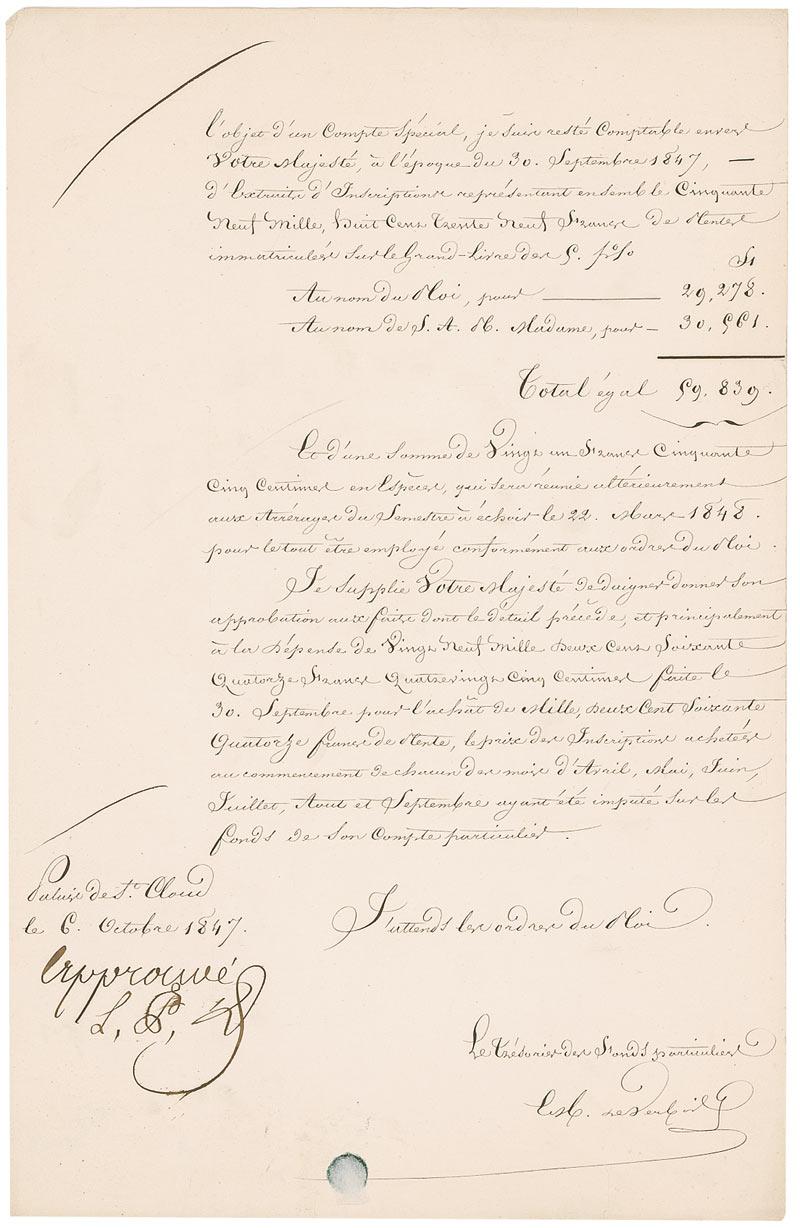 l'objet d'un Compte Spécial, je suis resté Comptable envers
Votre Majesté, à l'époque du 30. Septembre 1847, —
d'Extraits d'Inscriptions représentant ensemble Cinquante
Neuf Mille, Huit Cent Trente Neuf Francs de Rentes
immatriculées sur le Grand-Livre des 5. p%
Au nom du Roi, pour ——— 29,278.
Au nom de S. A. R. Madame, pour — 30,561.
Total égal 59.839.
Et d'une somme de Vingt un Francs Cinquante
Cinq Centimes en Espèces, qui sera réunie ultérieurement
aux Arrérages du Semestre à échoir le 22. Mars 1848.
pour le tout être employé conformément aux ordres du Roi.
Je supplie Votre Majesté de daigner donner son
approbation aux faits dont le détail précède, et principalement
à la Dépense de Vingt Neuf Mille Deux Cent Soixante
Quatorze Francs Quatrevingt Cinq Centimes faite le
30. Septembre pour l'achat de Mille, Deux Cent Soixante
Quatorze francs de Rente, le prix des Inscriptions achetées
au commencement de chacun des mois d'Avril, Mai, Juin,
Juillet, Aout et Septembre ayant été imputé sur les
fonds de son Compte particulier.
Palais de St. Cloud
le 6. Octobre 1847.
J'attends les ordres du Roi.
Approuvé
L. P.
Le Trésorier des Fonds particuliers